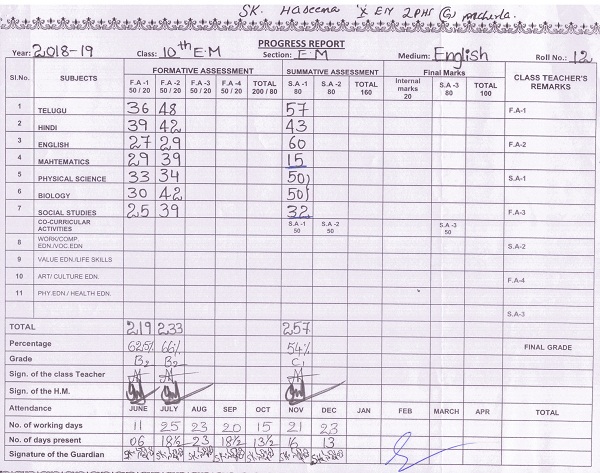 SK. Haseena X EM ZPHS (G) macherla.
PROGRESS REPORT
Year: 2018-19 Class: 10th E.M Section: E.M Medium: English Roll No.: 12
Sl.No. SUBJECTS FORMATIVE ASSESSMENT SUMMATIVE ASSESSMENT Final Marks CLASS TEACHER'S REMARKS
F.A -1 50 / 20 F.A -2 50 / 20 F.A -3 50 / 20 F.A -4 50 / 20 TOTAL 200 / 80 S.A -1 80 S.A -2 80 TOTAL 160 Internal marks 20 S.A -3 80 TOTAL 100
1 TELUGU 36 48 57 F.A-1
2 HINDI 39 42 43
3 ENGLISH 27 29 60 F.A-2
4 MAHTEMATICS 29 39 15
5 PHYSICAL SCIENCE 33 34 50) S.A-1
6 BIOLOGY 30 42 50)
7 SOCIAL STUDIES 25 39 32 F.A-3
CO-CURRICULAR ACTIVITIES S.A -1 50 S.A -2 50 S.A -3 50
8 WORK/COMP. EDN./VOC.EDN S.A-2
9 VALUE EDN./LIFE SKILLS
10 ART/ CULTURE EDN. F.A-4
11 PHY.EDN / HEALTH EDN.
S.A-3
TOTAL 219 233 257
Percentage 62.5% 66% 54% FINAL GRADE
Grade B2 B2 C1
Sign. of the class Teacher
Sign. of the H.M.
Attendance JUNE JULY AUG SEP OCT NOV DEC JAN FEB MARCH APR TOTAL
No. of working days 11 25 23 20 15 21 23
No. of days present 06 18½ 23 18½ 13½ 16 13
Signature of the Guardian